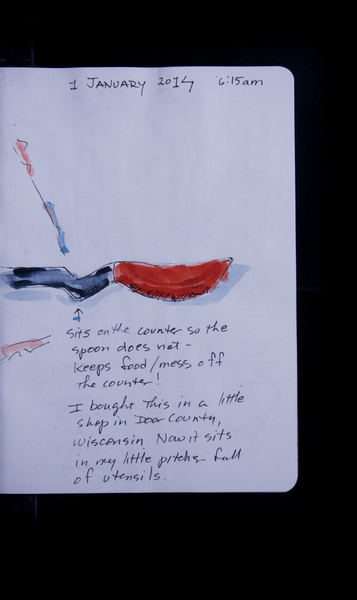 1 JANUARY 2014 6:15am
sits on the counter so the
spoon does not -
keeps food/mess off
the counter!
I bought this in a little
shop in Door County,
Wisconsin. Now it sits
in my little pitcher full
of utensils.